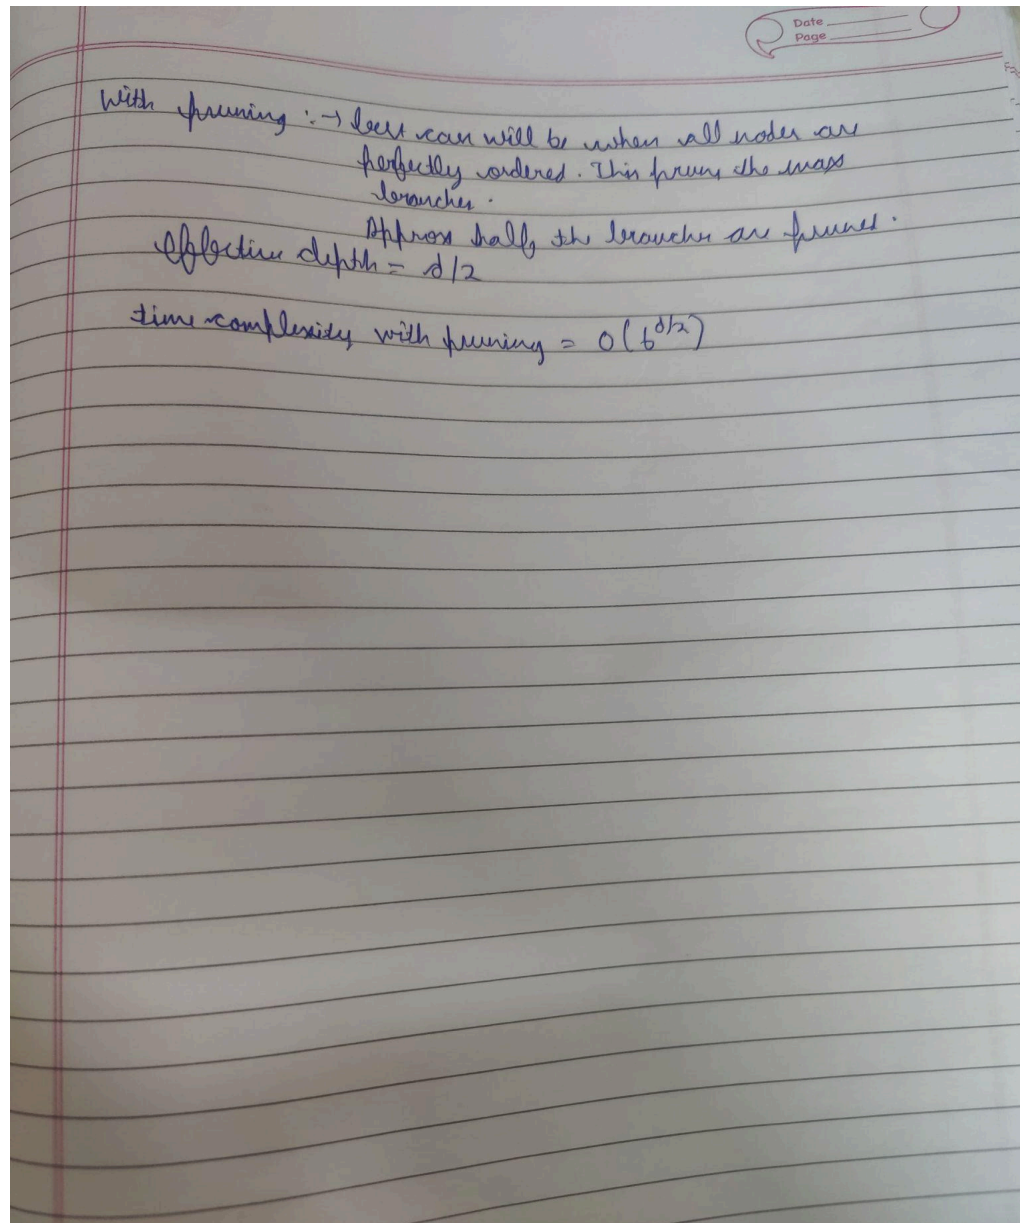 Date
Page
With pruning :→ best case will be when all nodes are
perfectly ordered. This prune the max
branches.
Approx half the branches are prunes.
effective depth = d/2
time complexity with pruning = O(b^d/2)